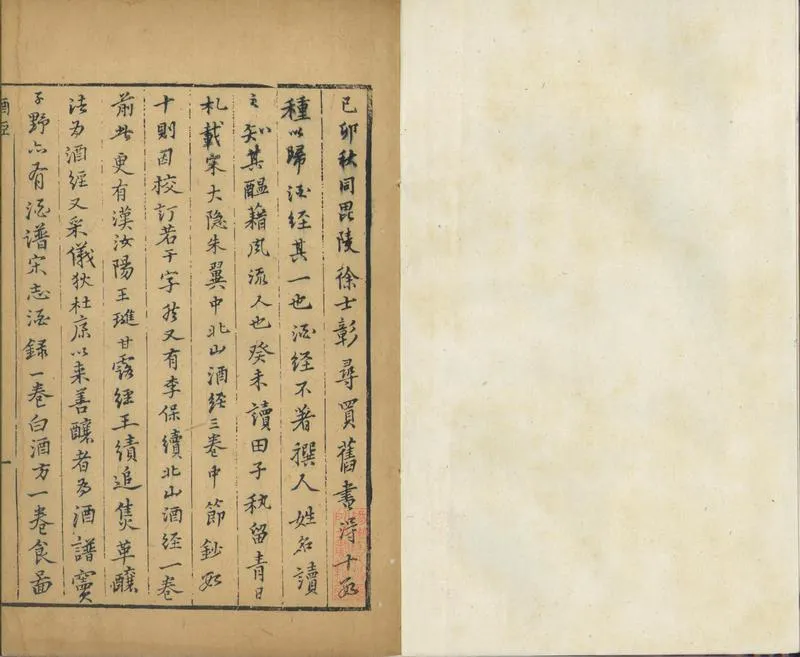 己卯秋同毘陵徐士彰尋買舊書得十數
種以歸酒經其一也酒經不著撰人姓名讀
之知其醞藉風流人也癸未讀田子秇留青日
札載宋大隐朱翼中北山酒經三卷中節鈔數
十則因校訂若干字於又有李保續北山酒經一卷
前此更有漢汝陽王璡甘露經王績追焦革釀
法為酒經又采儀狄杜康以来善釀者為酒譜竇
子野亦有酒譜宋志酒録一卷白酒方一卷食啚
酒經
一